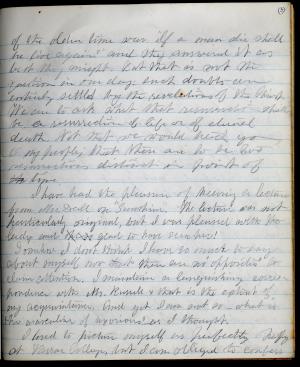 of the olden time was "If a man die shall
he live again" and they answered it as
best they might. But that is not the
question in our day. Such doubts are
entirely settled by the revelations of the
We can but ask what that resurrection shall
be a resurrection to life or of eternal
death. Not that we would have you
my people, that there are to be two
resurrections distinct in point of
time
I have had the pleasure of hearing a lecture
from on "Sunshine". The lecture was not
particularly original, but I was pleased with the
lady and glad to have seen her!
Somehow I don't think I have so much to say
about myself now that there are no "opposites" to
claim attention. I maintain a languishing corres-
pondence with Mr. & that is the extent of
my acquaintance. And yet I am not so what is
the masculine of as I thought.
I used to picture myself as perfectly happy
at Vassar College, but I am obliged to confess